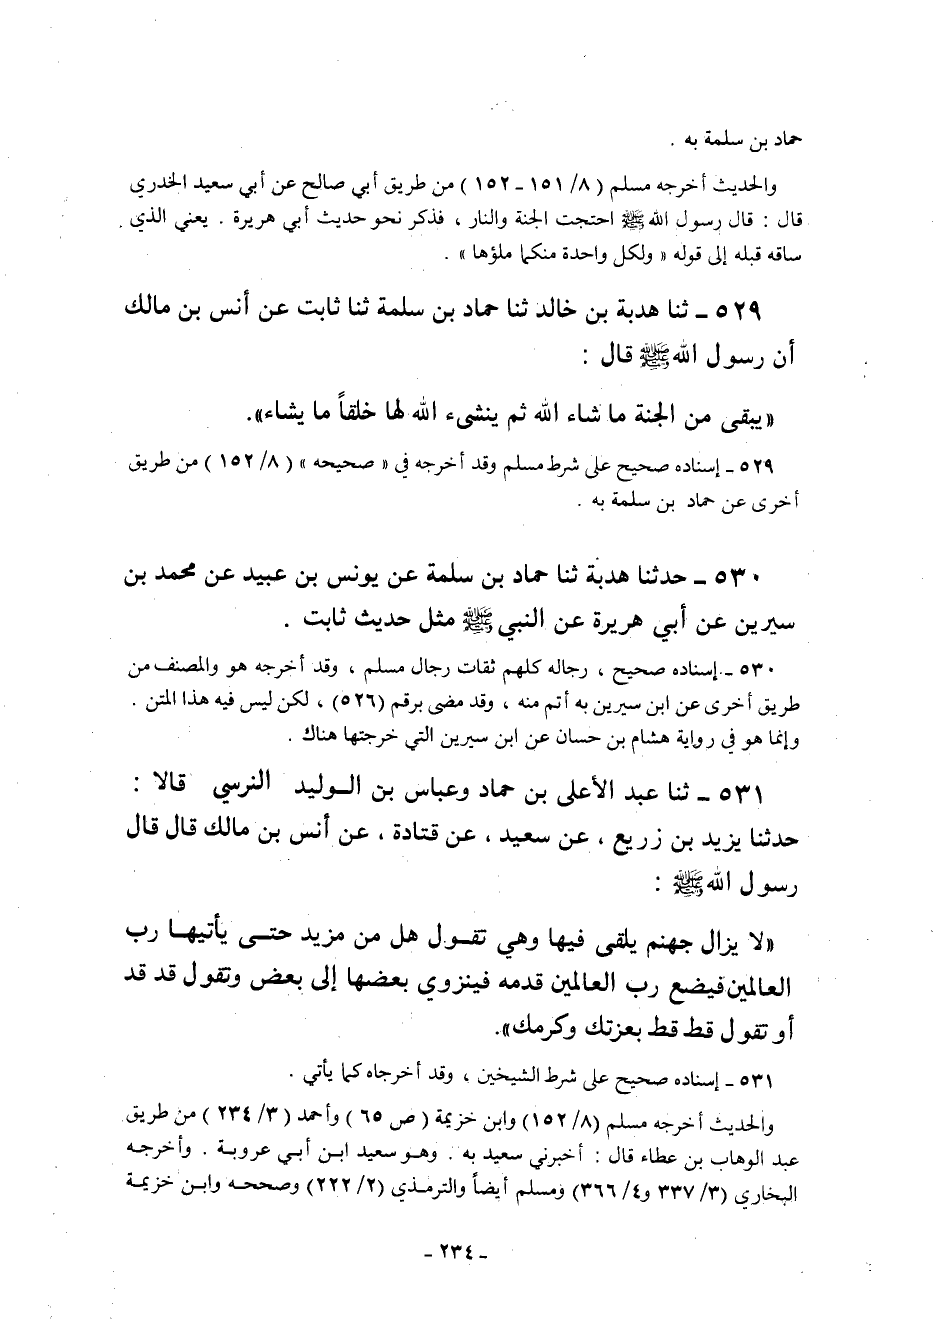 حماد بن سلمة به .
والحديث أخرجه مسلم ( ٨/ ١٥١ ـ ١٥٢ ) من طريق أبي صالح عن أبي سعيد الخدري
قال : قال رسول الله ﷺ احتجت الجنة والنار ، فذكر نحو حديث أبي هريرة . يعني الذي
ساقه قبله إلى قوله « ولكل واحدة منكما ملؤها » .
٥٢٩ ـ ثنا هدبة بن خالد ثنا حماد بن سلمة ثنا ثابت عن أنس بن مالك
أن رسول الله ﷺ قال :
«يبقى من الجنة ما شاء الله ثم ينشىء الله لها خلقاً ما يشاء».
٥٢٩ ـ إسناده صحيح على شرط مسلم وقد أخرجه في « صحيحه » ( ٨/ ١٥٢ ) من طريق
أخرى عن حماد بن سلمة به .
٥٣٠ ـ حدثنا هدبة ثنا حماد بن سلمة عن يونس بن عبيد عن محمد بن
سيرين عن أبي هريرة عن النبي ﷺ مثل حديث ثابت .
٥٣٠ ـ إسناده صحيح ، رجاله كلهم ثقات رجال مسلم ، وقد أخرجه هو والمصنف من
طريق أخرى عن ابن سيرين به أتم منه ، وقد مضى برقم (٥٢٦) ، لكن ليس فيه هذا المتن .
وإنما هو في رواية هشام بن حسان عن ابن سيرين التي خرجتها هناك .
٥٣١ ـ ثنا عبد الأعلى بن حماد وعباس بن الوليد النرسي قالا :
حدثنا يزيد بن زريع ، عن سعيد ، عن قتادة ، عن أنس بن مالك قال قال
رسول الله ﷺ :
«لا يزال جهنم يلقى فيها وهي تقول هل من مزيد حتى يأتيها رب
العالمين فيضع رب العالمين قدمه فينزوي بعضها إلى بعض وتقول قد قد
أو تقول قط قط بعزتك وكرمك».
٥٣١ ـ إسناده صحيح على شرط الشيخين ، وقد أخرجاه كما يأتي .
والحديث أخرجه مسلم (٨/ ١٥٢) وابن خزيمة ( ص ٦٥ ) وأحمد ( ٣/ ٢٣٤ ) من طريق
عبد الوهاب بن عطاء قال : أخبرني سعيد به . وهو سعيد ابن أبي عروبة . وأخرجه
البخاري (٣/ ٣٣٧ و٤/ ٣٦٦) ومسلم أيضاً والترمذي (٢/ ٢٢٢) وصححه وابن خزيمة
ـ ٢٣٤ ـ